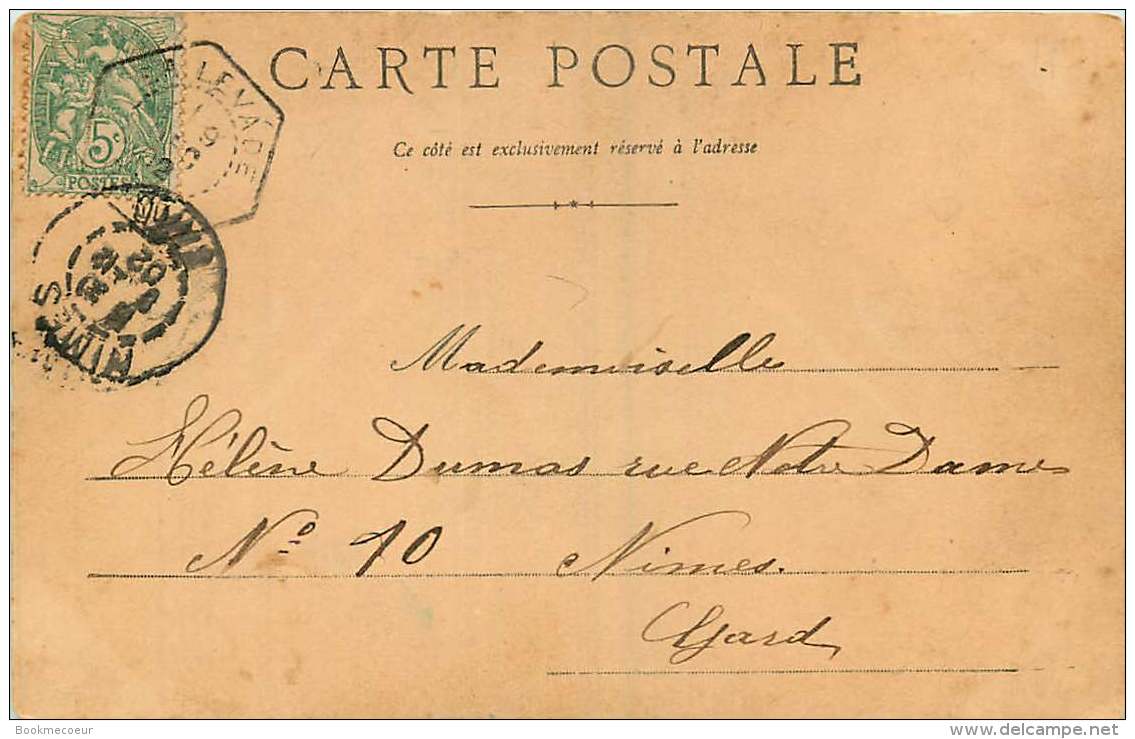 CARTE POSTALE
Ce côté est exclusivement réservé à l'adresse
5c
POSTES
LEVAGE
NIMES
02
Mademoiselle
Hélène Dumas rue Notre Dame
No 10 Nimes.
Gard
Bookmecoeur
www.delcampe.net